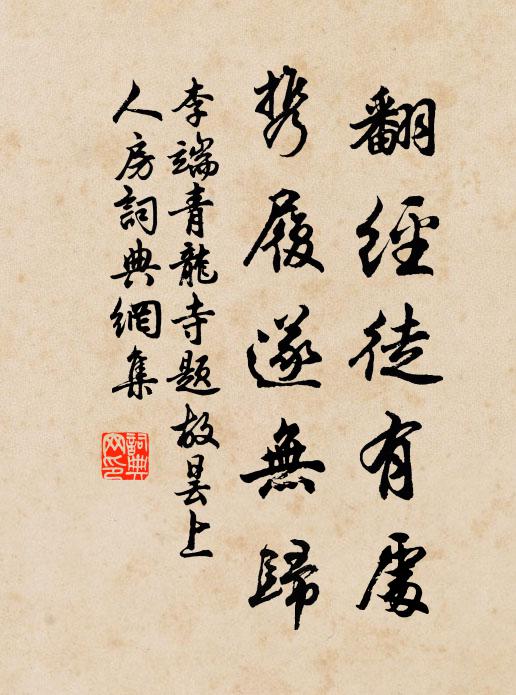 翻經徒有處
携履遂無歸
李端青龍寺題故曇上
人房詞典網集
詞典
网印